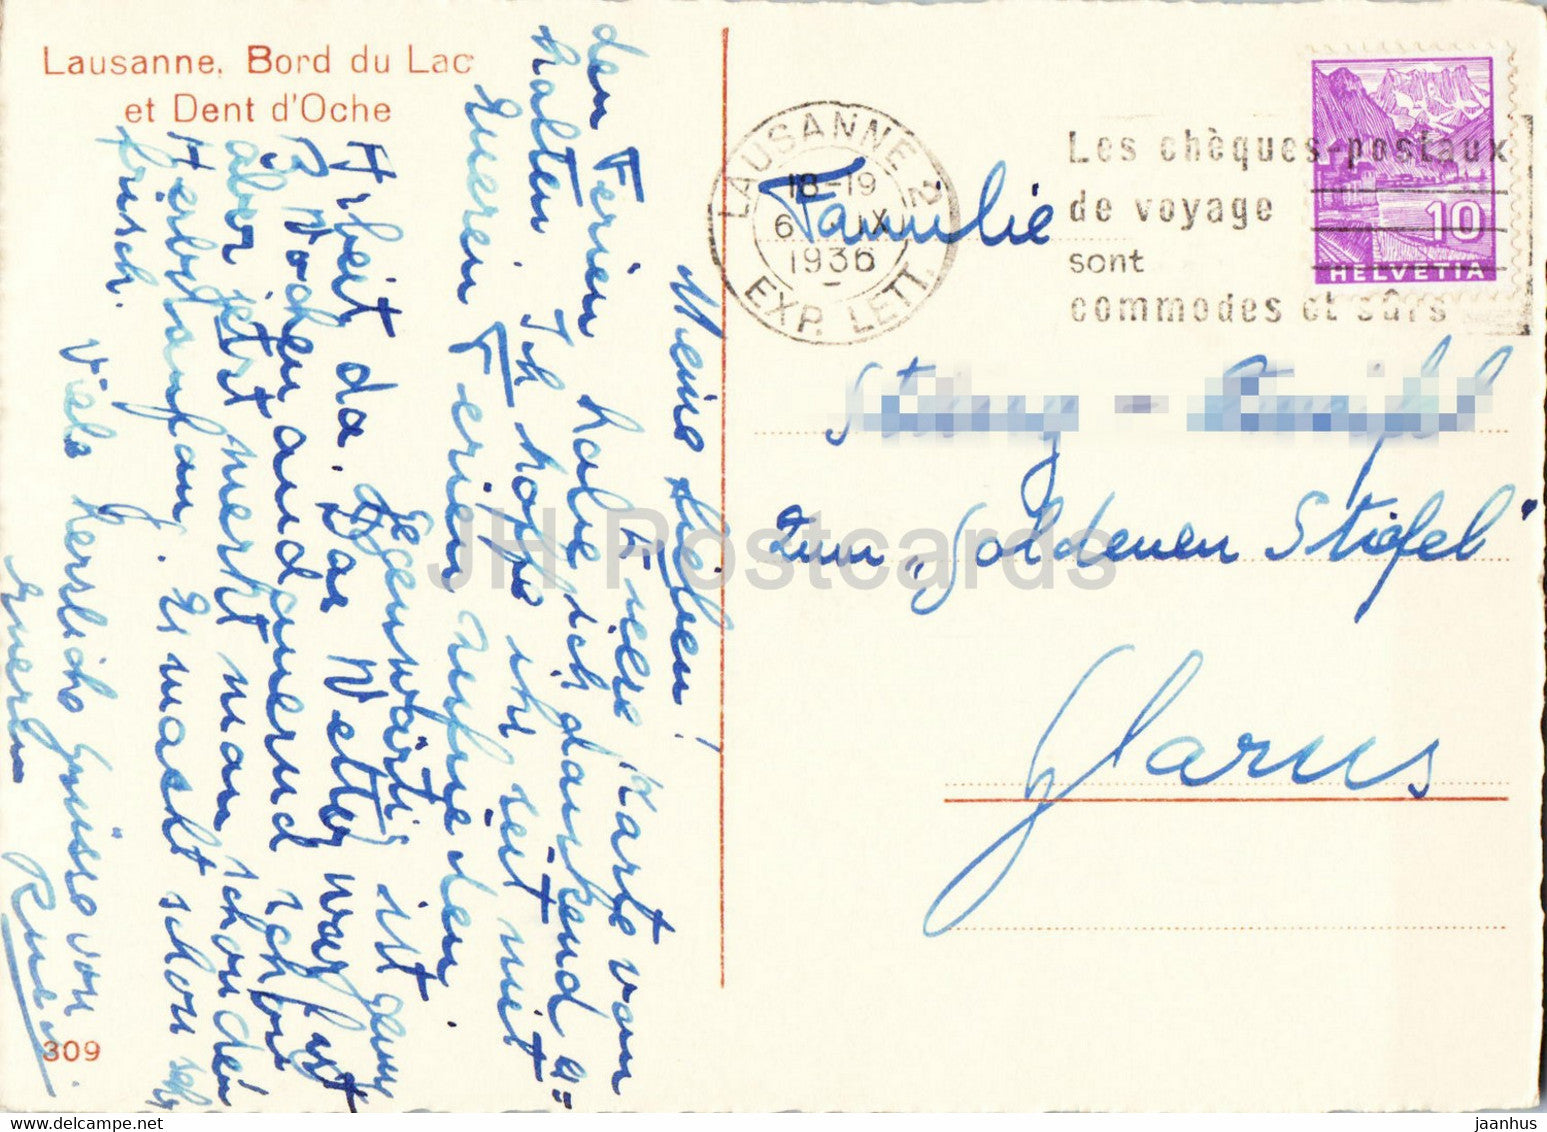 Lausanne, Bord du Lac
et Dent d'Oche
Meine Lieben!
Eure Karte von
den Ferien habe ich dankend er=
halten. Ich hoffe ihr seit mit
Eueren Ferien zufrieden.
Gegenwärtig ist genug
Arbeit da. Das Wetter war fast
3 Wochen andauernd schön
aber jetzt merkt man schon den
Herbstanfang. Es macht schon sehr
frisch.
Viele herzliche Grüsse von
Euerm
309
LAUSANNE 2
18-19
6 IX
1936
EXP. LETT.
Les chèques postaux
de voyage
sont
commodes et sûrs
10
HELVETIA
Familie
zum „Goldenen Stiefel"
Glarus
JH Postcards
https://www.delcampe.net
jaanhus